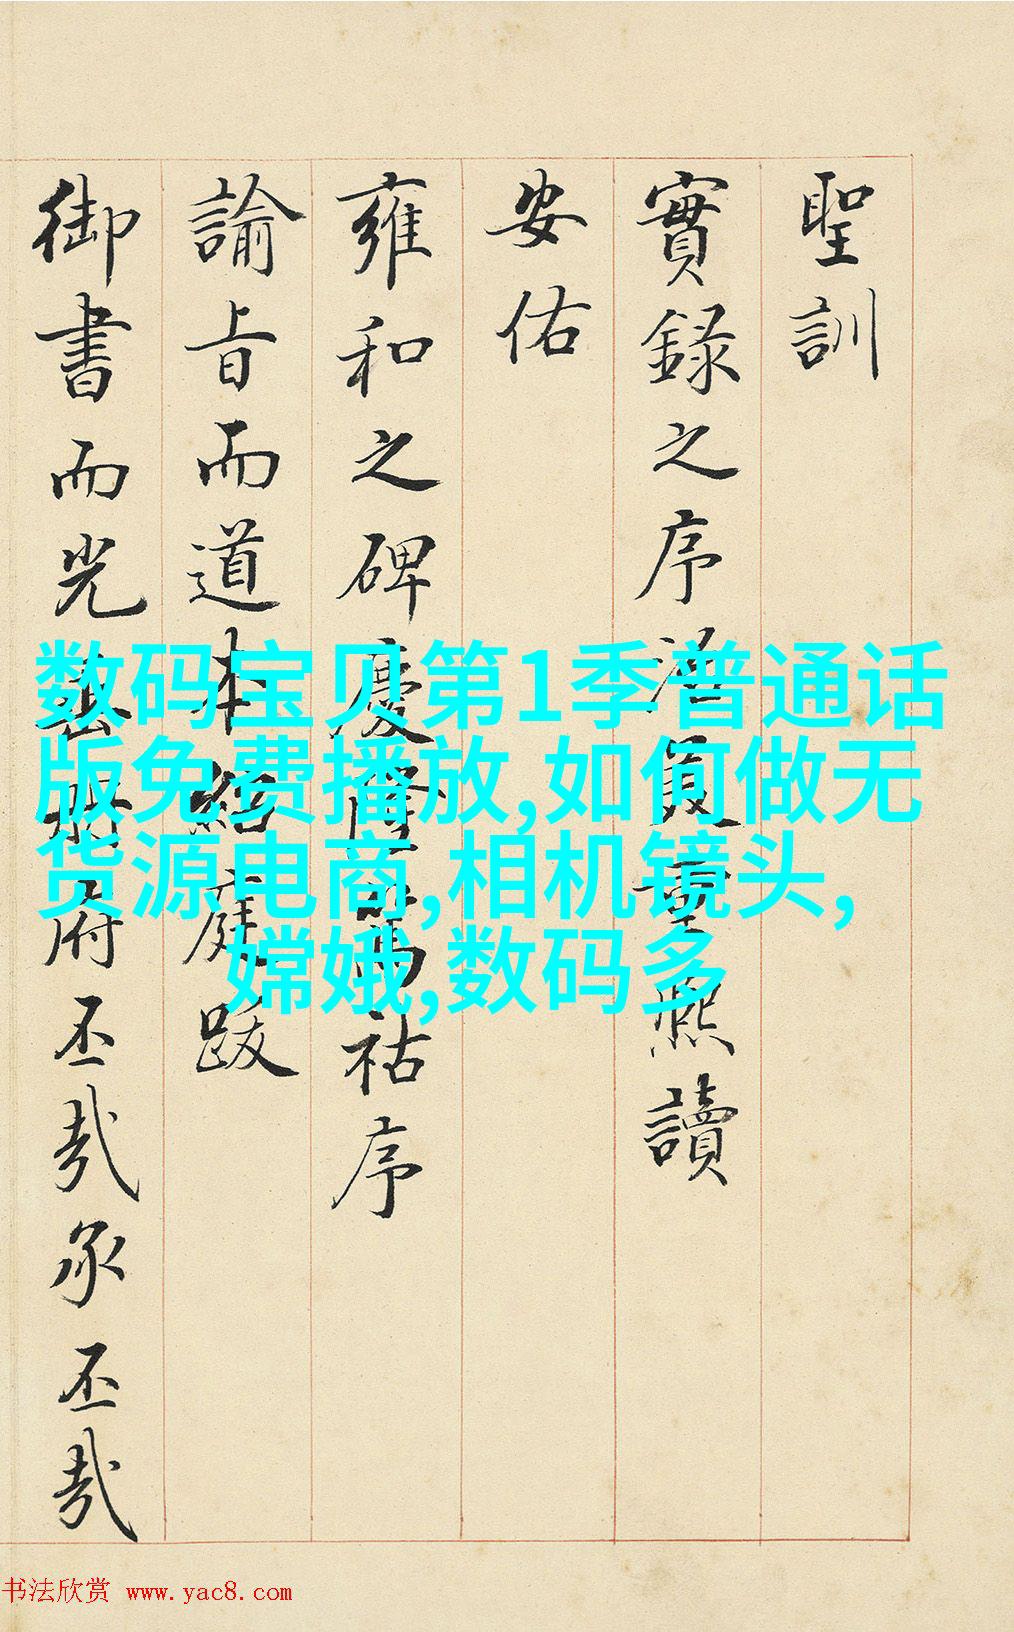 聖訓
實録之序重熙讀
安佑
雍和之碑慶隆祜序
諭旨而道本紹庭跋
御書而光府丕哉承丕哉
数码宝贝第1季普通话
版免费播放,如何做无
货源电商,相机镜头,
嫦娥,数码多
书法欣赏 www.yac8.com